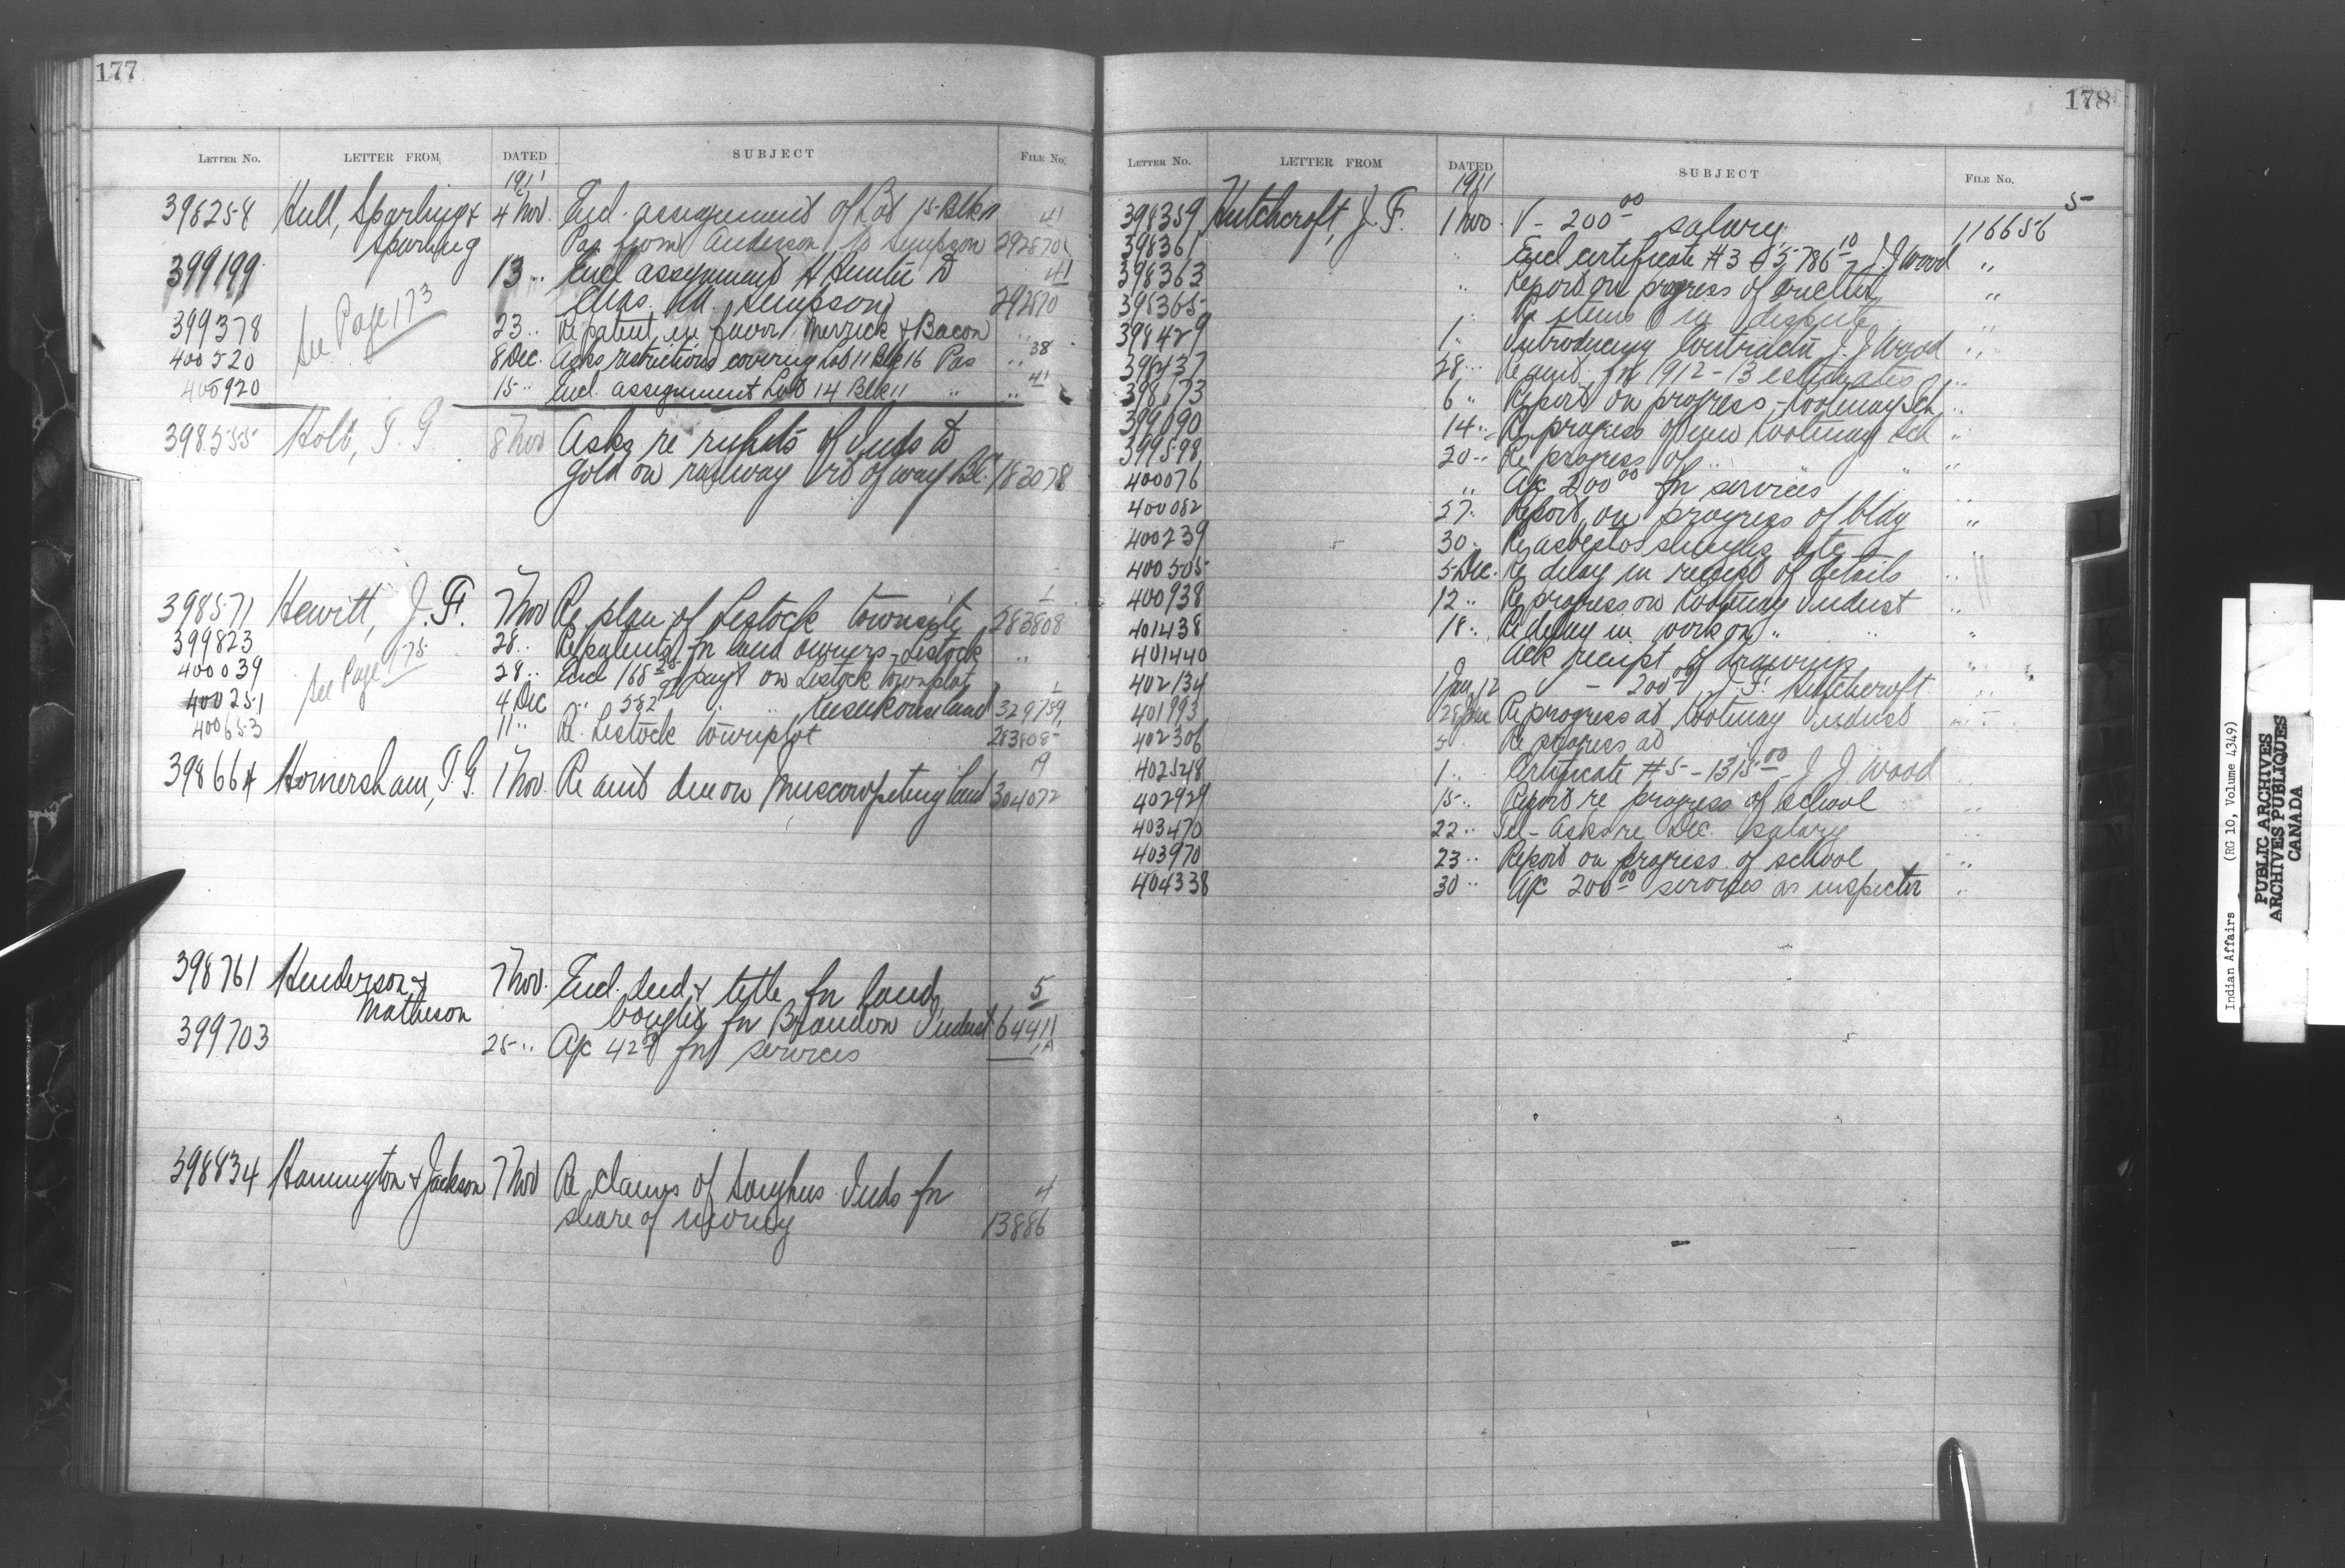 177
LETTER No. LETTER FROM DATED SUBJECT FILE No.
1911
398258 Hull, Sparling & 4 Nov. Encl. assignment of Lot 15 Blk 11 41
Sparling Pas from Anderson to Simpson 292870
399199 13 " Encl assignment H Hunter to 41
Chas. M. Simpson 292870
See Page 173
399378 23 " Re patent in favor Merrick & Bacon "
400520 8 Dec. Asks restrictions covering Lot 11 Blk 16 Pas " 38
400920 15 " Encl. assignment Lot 14 Blk 11 " " 41
398555 Holt, T. G. 8 Nov Asks re rights of Inds to
gold on railway rt of way B.C. 183078
398571 Hewitt, J. F. 7 Nov Re plan of Lestock townsite 283808
399823 28 " Re patents for land owners - Lestock "
400039 See Page 175 28 " Encl 168 payt on Lestock townplot
400251 4 Dec " 582 " " land 329759
400653 11 " Re. Lestock townplot 283808
398664 Homersham, T. G. 1 Nov. Re amt due on Muscowpetung land 304072
19
398761 Henderson & 7 Nov. Encl. deed & title for land 5
Matheson bought for Brandon Indust 64411
399703 25 " A/c 42 for services
398834 Hannington & Jackson 7 Nov Re claims of Songhees Inds for 4
share of money 13886
178
LETTER No. LETTER FROM DATED SUBJECT FILE No.
1911
398359 Hutchcroft, J. F. 1 Nov. V - 200 00 salary 116656 5
398361 " Encl certificate #3 $5786 10 J. J Wood "
398363 " Report on progress of "
398365 " Re items in dispute "
398429 1 " Introducing Contractor J. J Wood "
398437 28 " Re amt. for 1912-13 estimates "
398673 6 " Report on progress - Kootenay Sch "
399090 14 " Re progress of new Kootenay Sch "
399598 20 " Re progress of " " " "
400076 " A/c 200 00 for services "
400082 27 " Report on progress of bldg "
400239 30 " Re asbestos shingles etc "
400505 5 Dec. Re delay in receipt of details "
400938 12 " Re progress on Kootenay Indust "
401438 18 " Re delay in work on " " "
401440 Ack receipt of drawings "
402134 1 Jan 12 - 200 00 J. F. Hutchcroft "
401993 28 Dec Re progress at Kootenay Indust "
402306 5 Re progress at
402528 1 " Certificate #5 - 1315 00 J J Wood
402929 15 " Report re progress of school "
403470 22 " Tel - Asks re Dec. salary "
403970 23 " Report on progress of school "
404338 30 " A/c 200 00 services as inspector "
Indian Affairs (RG 10, Volume 4349)
PUBLIC ARCHIVES
ARCHIVES PUBLIQUES
CANADA